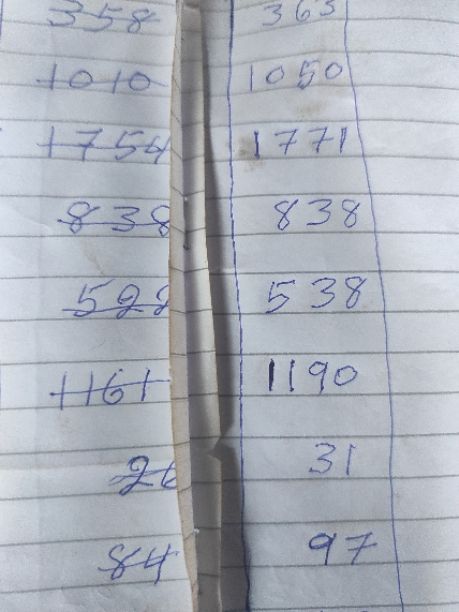 358 363
1010 1050
1754 1771
838 838
522 538
1161 1190
26 31
84 97